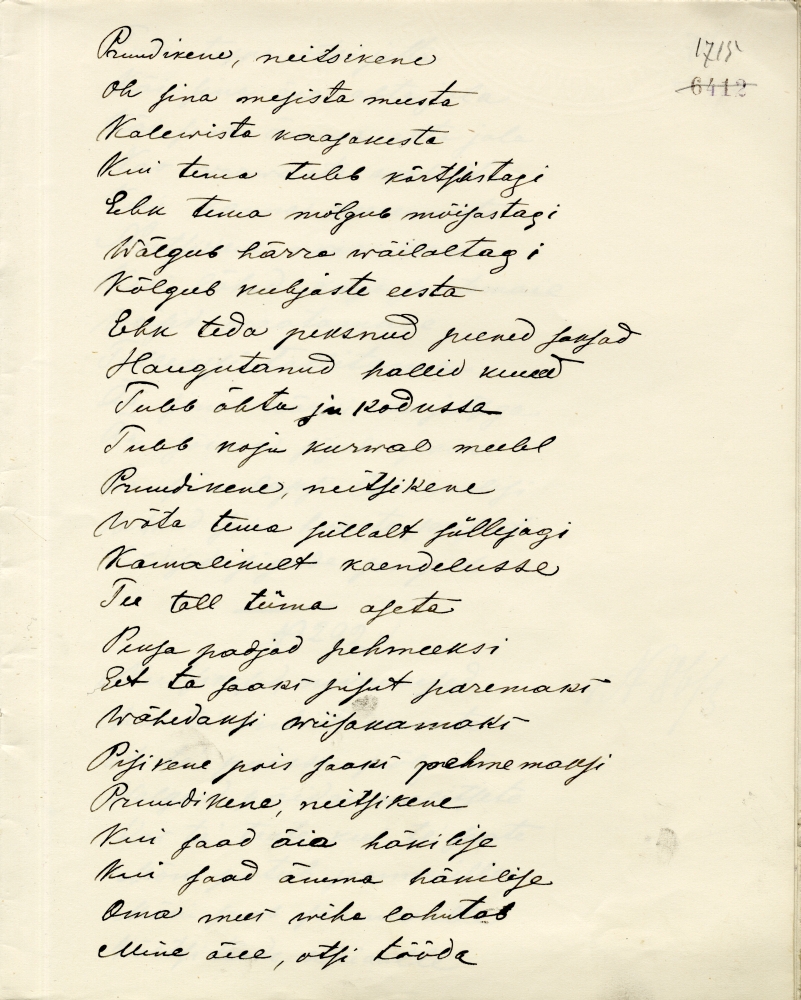 1715
6412
Pruudikene, neitsikene
Oh sina mesista meesta
Kalewista kaasakesta
Kui tema tuleb kõrtsistagi
Ehk tema mõlgub mõisastagi
Wälgub härra wäilaltagi
Kõlgub kubjaste eesta
Ehk teda peksnud peened saksad
Haugutanud hallid kuued
Tuleb õhta ju kodussa
Tuleb koju kurwal meelel
Pruudikene, neitsikene
Wõta tema süllalt süllejagi
Kawalikult kaendelusse
Tee tall tüma aseta
Peksa padjad pehmeeksi
Et ta saaks pisut paremaks
Wähedaksi wiisakamaks
Pisikene pois saaks pehmemaksi
Pruudikene, neitsikene
Kui saad äia häkilise
Kui saad ämma häkilise
Oma mees wiha lahutab
Mine õue, otsi tööda